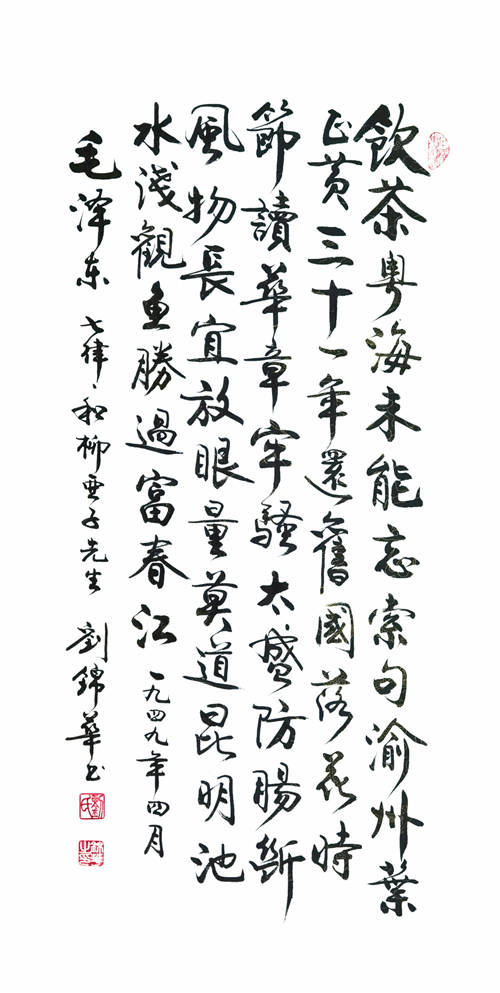 飲茶粵海未能忘索句渝州葉
正黄三十一年還舊國落花時
節讀華章牢騷太盛防腸斷
風物長宜放眼量莫道昆明池
水淺觀魚勝過富春江 一九四九年四月
毛泽东 七律·和柳亞子先生 劉錦華书